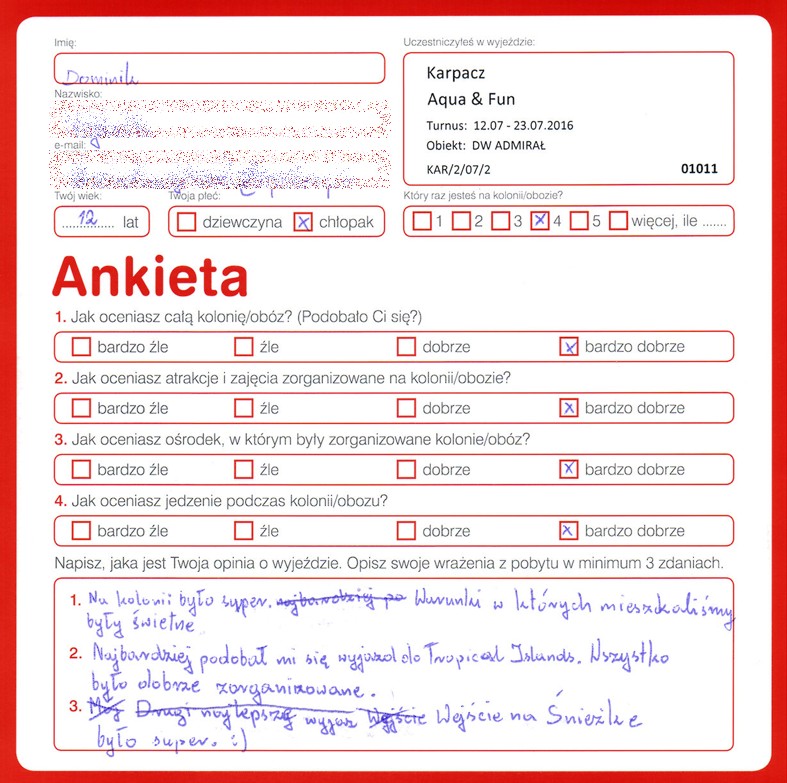 Imię:
Dominik
Nazwisko:
e-mail:
Uczestniczyłeś w wyjeździe:
Karpacz
Aqua & Fun
Turnus: 12.07 - 23.07.2016
Obiekt: DW ADMIRAŁ
KAR/2/07/2 01011
Twój wiek: Twoja płeć: Który raz jesteś na kolonii/obozie?
12 lat dziewczyna x chłopak 1 2 3 x 4 5 więcej, ile .......
Ankieta
1. Jak oceniasz całą kolonię/obóz? (Podobało Ci się?)
bardzo źle źle dobrze x bardzo dobrze
2. Jak oceniasz atrakcje i zajęcia zorganizowane na kolonii/obozie?
bardzo źle źle dobrze x bardzo dobrze
3. Jak oceniasz ośrodek, w którym były zorganizowane kolonie/obóz?
bardzo źle źle dobrze x bardzo dobrze
4. Jak oceniasz jedzenie podczas kolonii/obozu?
bardzo źle źle dobrze x bardzo dobrze
Napisz, jaka jest Twoja opinia o wyjeździe. Opisz swoje wrażenia z pobytu w minimum 3 zdaniach.
1. Na kolonii było super. najbardziej po Warunki w których mieszkaliśmy
były świetne
2. Najbardziej podobał mi się wyjazd do Tropical Islands. Wszystko
było dobrze zorganizowane.
3. Mój Drugi najlepszy wyjaz Wejście Wejście na Śnieżke
było super. :)